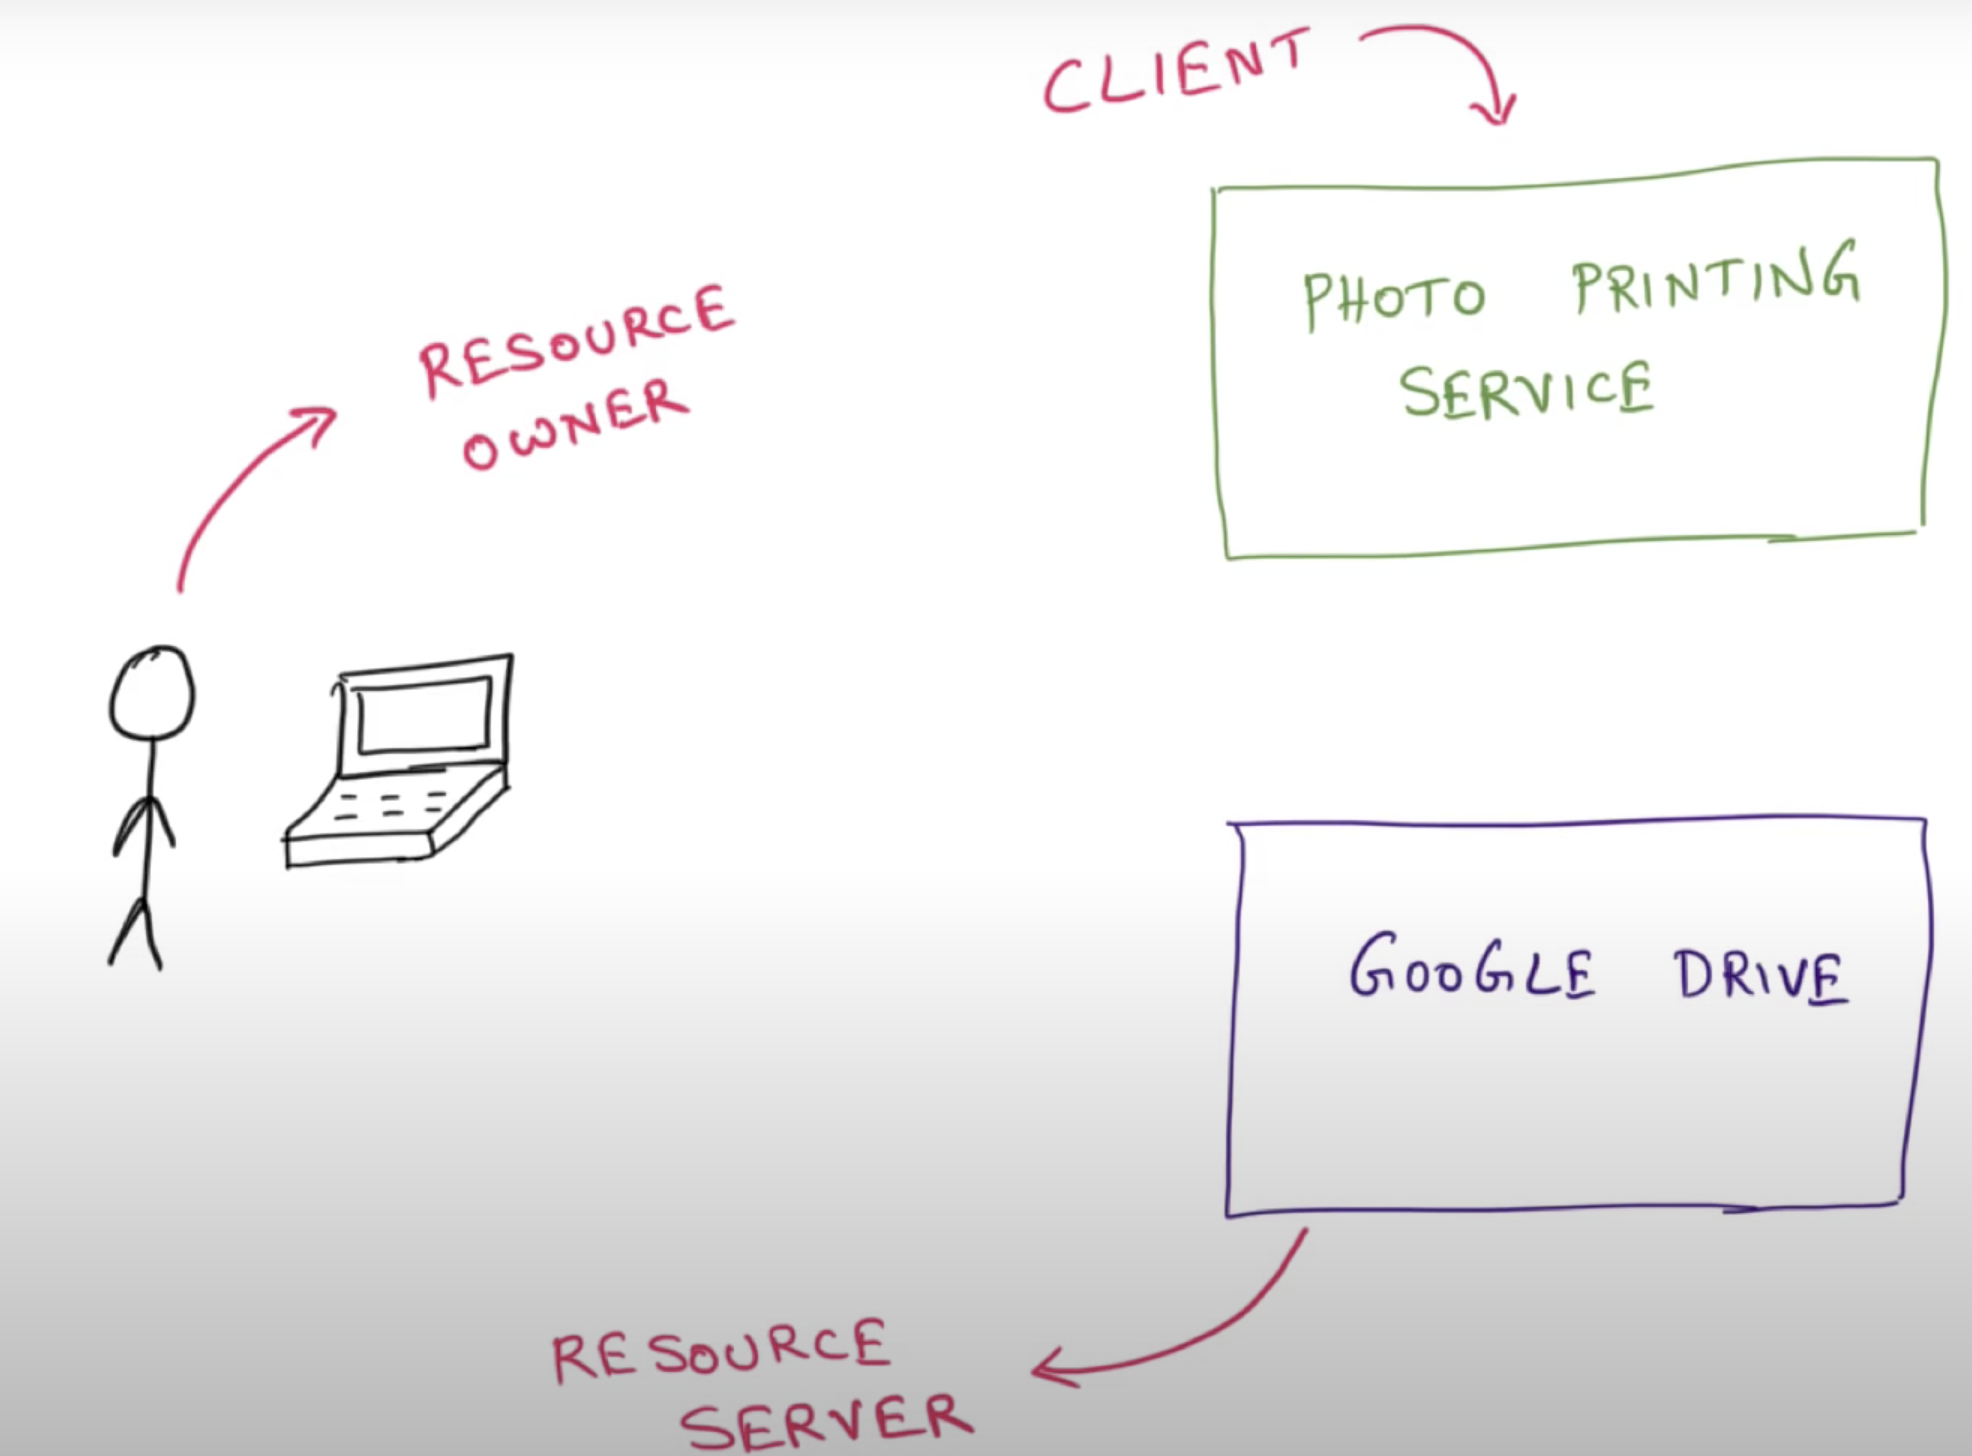 CLIENT
PHOTO PRINTING
SERVICE
RESOURCE
OWNER
GOOGLE DRIVE
RESOURCE
SERVER